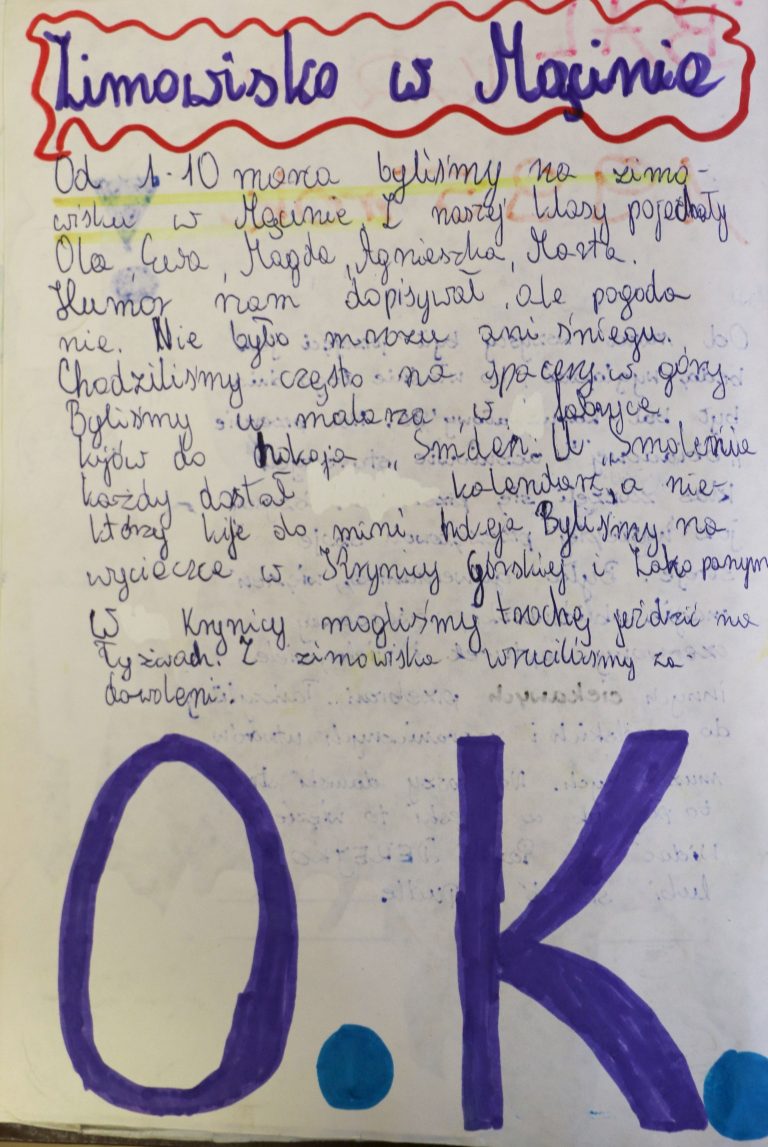 Zimowisko w Męcinie
Od 1-10 marca byliśmy na zimo-
wisku w Męcinie. Z naszej klasy pojechały
Ola, Ewa, Magda, Agnieszka, Marta.
Humor nam dopisywał, ale pogoda
nie. Nie było mrozu ani śniegu.
Chodziliśmy często na spacery w góry
Byliśmy u malarza, w fabryce
kijów do hokeja „Smolen". U „Smolenia
każdy dostał kalendarz, a nie-
którzy kije do mini hokeja. Byliśmy na
wycieczce w Krynicy Górskiej i Zakopanym
W Krynicy mogliśmy trochę jeździć na
łyżwach. Z zimowiska wróciliśmy za
dowoleni.
O.K.